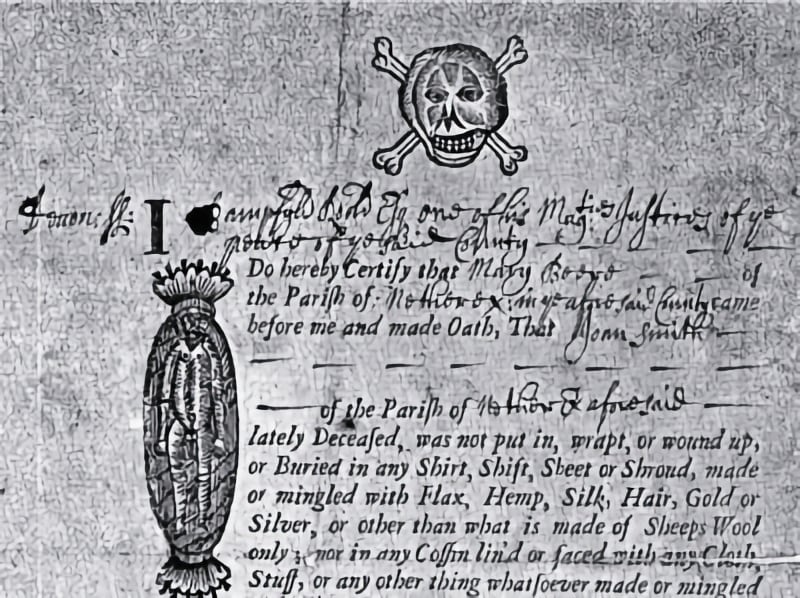 Devon: ss: I Bampfyld Rodd Esq one of his Maj:ties Justices of ye
peace of ye said County
Do hereby Certify that Mary Beere of
the Pariſh of: Netherex: in ye afore said County came
before me and made Oath, That Joan Smith
of the Pariſh of Netherex aforesaid
lately Deceaſed, was not put in, wrapt, or wound up,
or Buried in any Shirt, Shift, Sheet or Shroud, made
or mingled with Flax, Hemp, Silk, Hair, Gold or
Silver, or other than what is made of Sheeps Wool
only; nor in any Coffin lin'd or faced with any Cloth,
Stuff, or any other thing whatſoever made or mingled